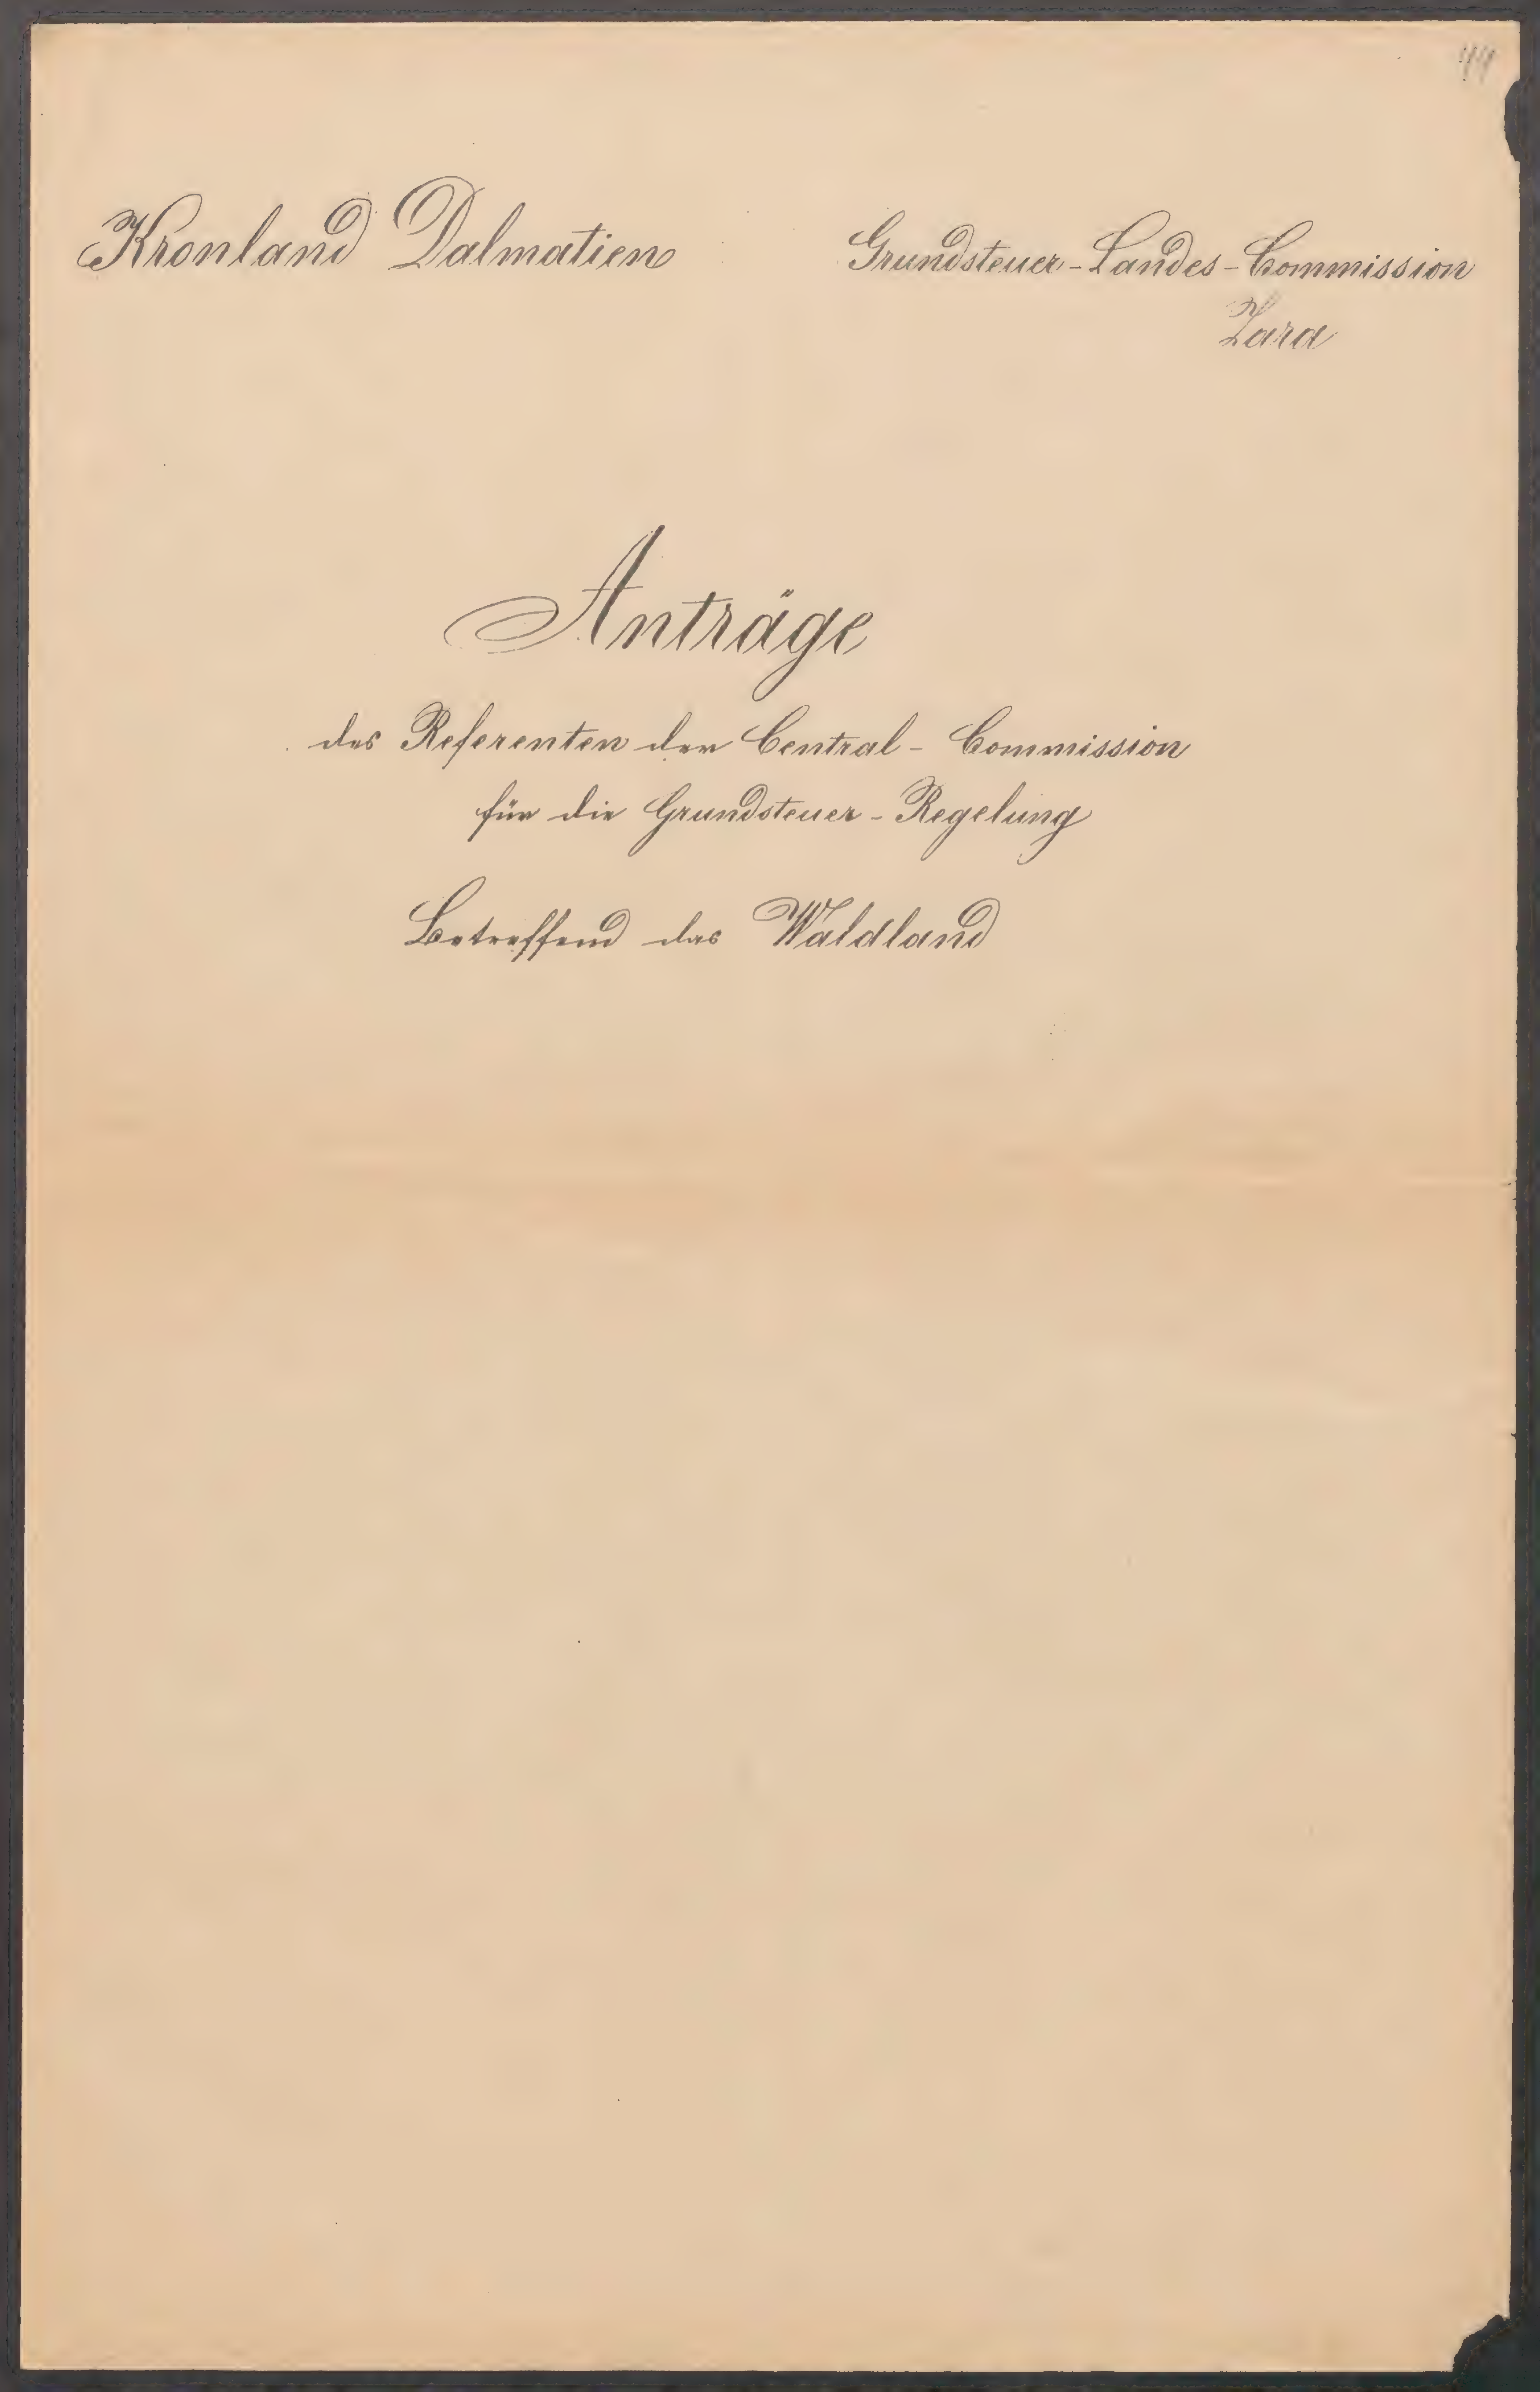 Kronland Dalmatien
Grundsteuer-Landes-Commission
Zara
Anträge
des Referenten der Central-Commission
für die Grundsteuer-Regelung
Betreffend das Waldland